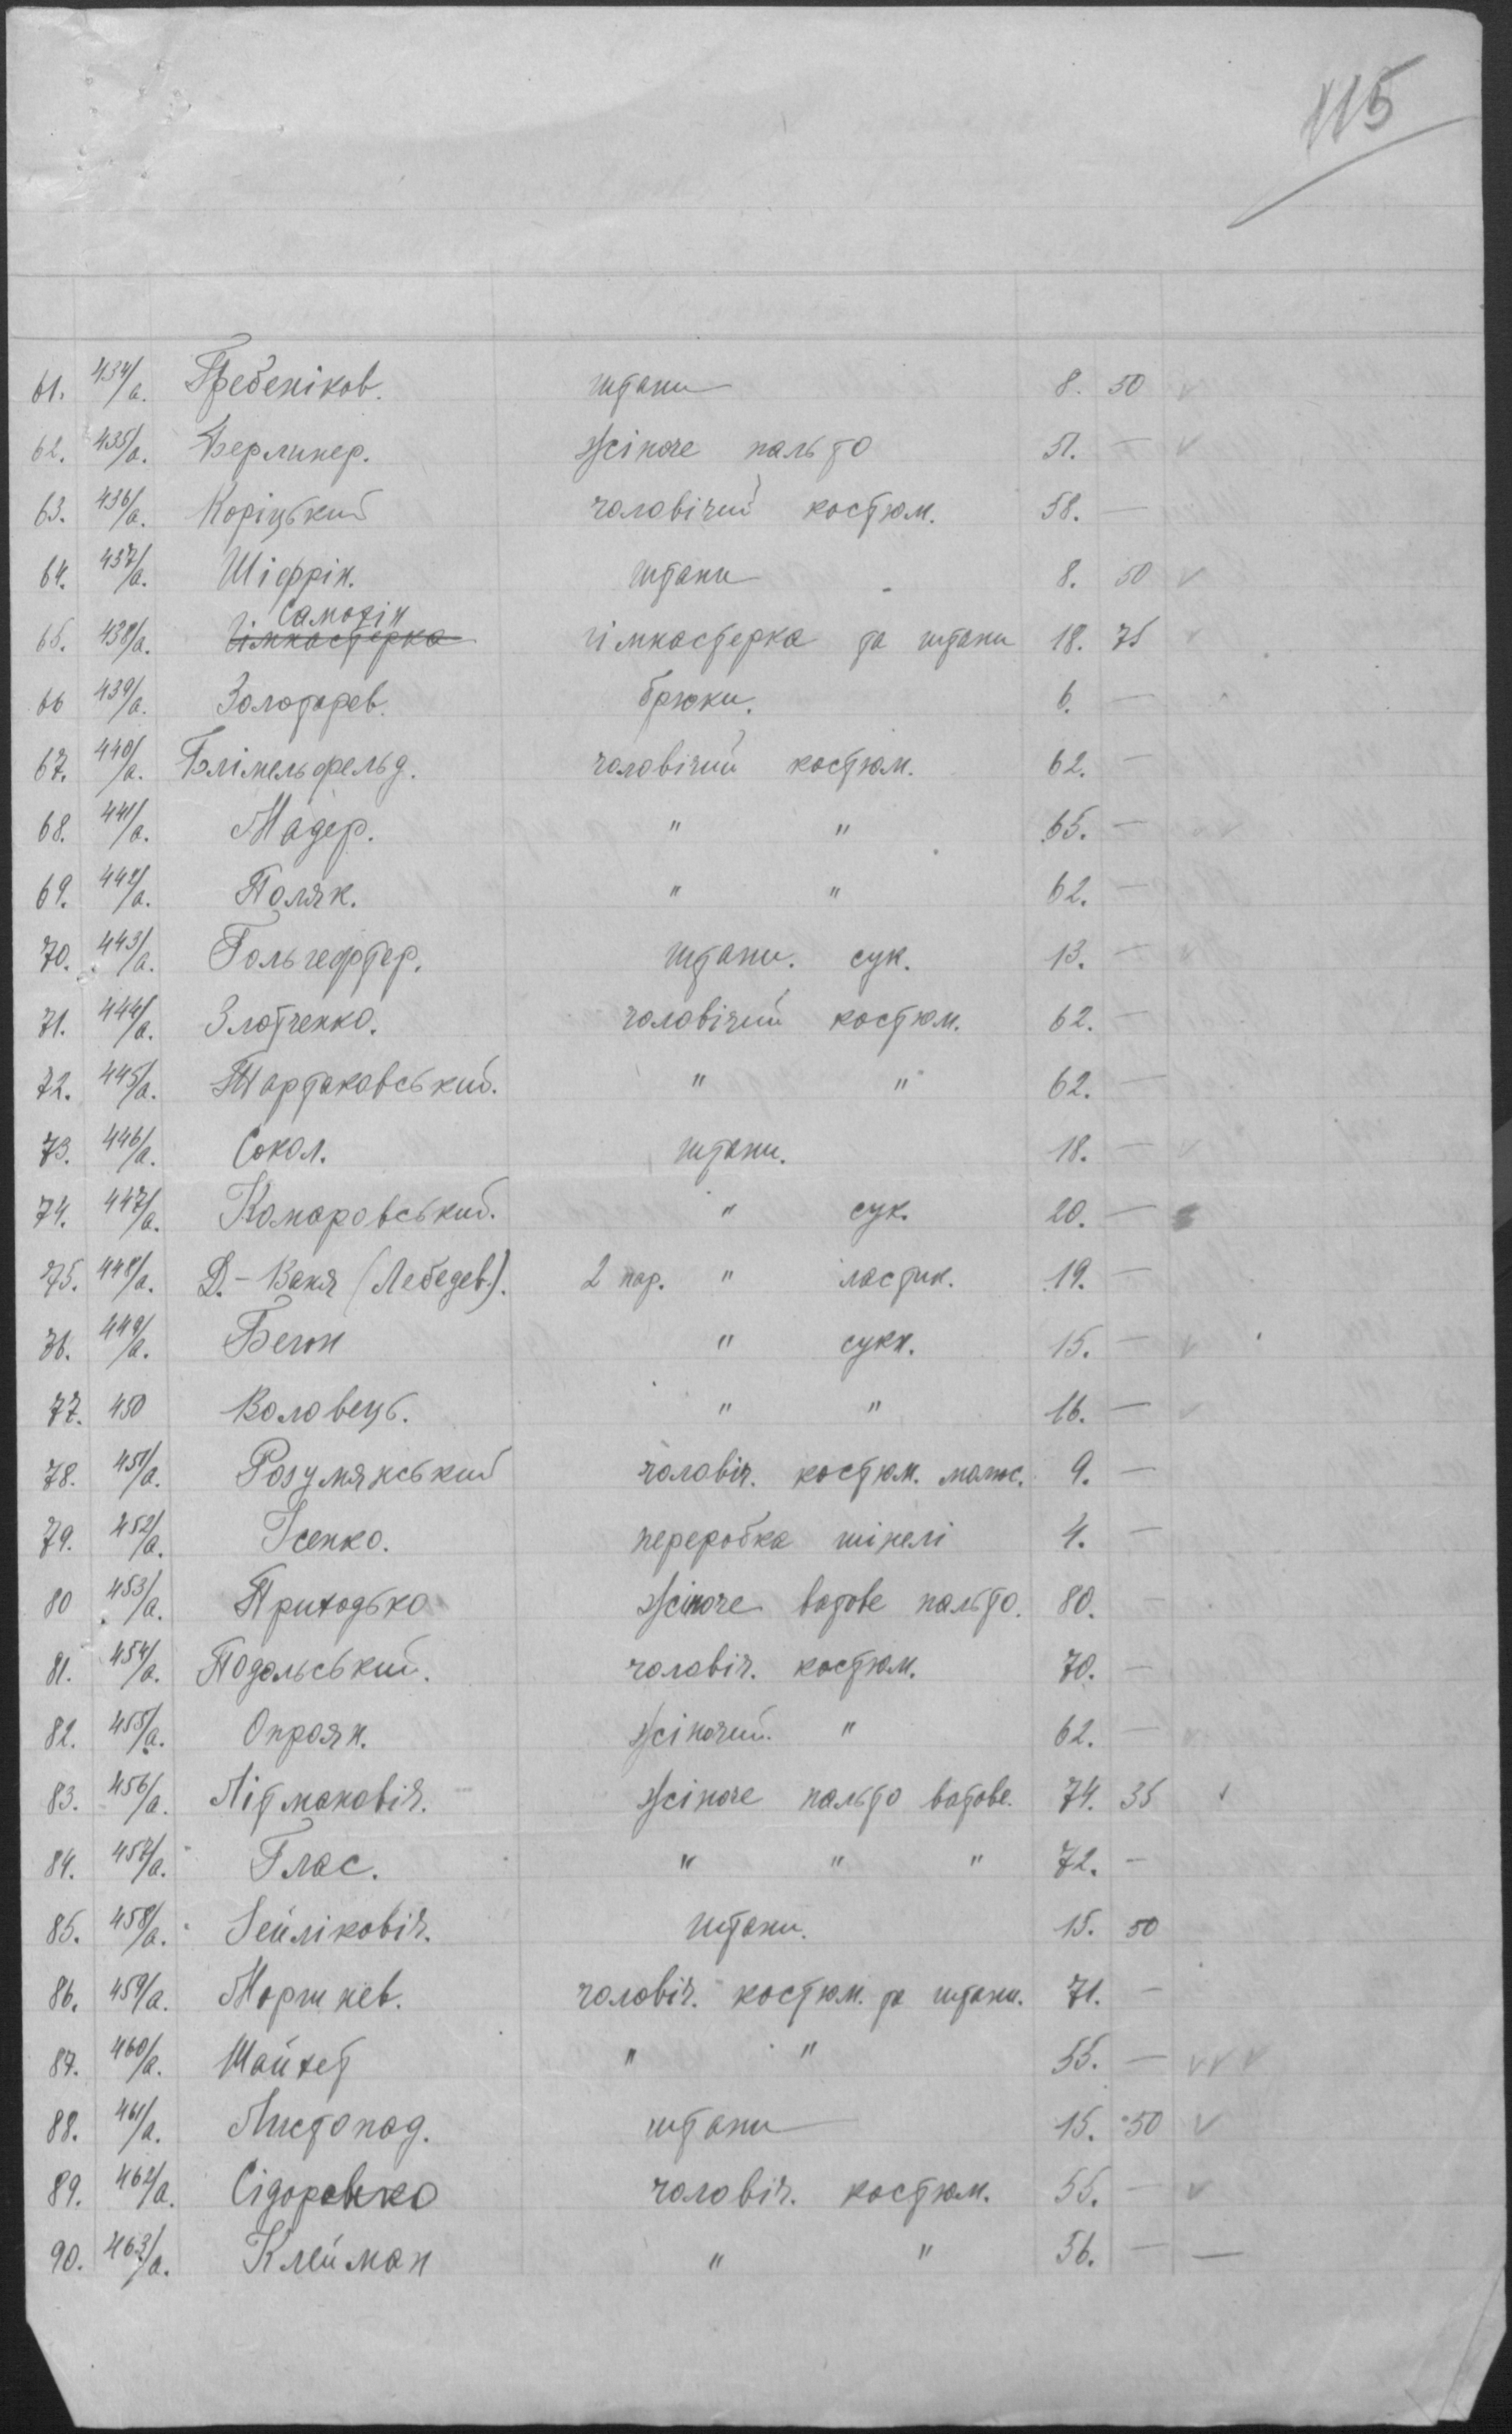 115
61. 434/а. Гребеніков. штани 8. 50 v
62. 435/а. Берлинер. жіноче пальто 51. — v
63. 436/а. Коріцький чоловічий костюм. 58. —
64. 437/а. Шіфрін. штани 8. 50 v
Самодін
65. 438/а. гімнастерка гімнастерка та штани 18. 75 v
66 439/а. Золотарев. брюки. 6. —
67. 440/а. Блімельфельд. чоловічий костюм. 62. —
68. 441/а. Мадер. " " 65. —
69. 442/а. Поляк. " " 62. —
70. 443/а. Гольгефтер. штани. сук. 13. — v
71. 444/а. Злотченко. чоловічий костюм. 62. —
72. 445/а. Тартаковський. " " 62. —
73. 446/а. Сокол. штани. 18. — v
74. 447/а. Комаровський. " сук. 20. —
75. 448/а. Д.-Ваня (Лебедев.). 2 пар. " ластик. 19. —
76. 449/а. Бегон " сукн. 15. — v
77. 450 Воловець. " " 16. — v
78. 451/а. Розумянський чоловіч. костюм. 9. —
79. 452/а. Ісенко. переробка шінелі 4. —
80 453/а. Приходько жіноче ватове пальто. 80. —
81. 454/а. Подольський. чоловіч. костюм. 70. —
82. 455/а. Опроян. жіночий. " 62. —
83. 456/а. Літмановіч. жіноче пальто ватове. 74. 35 v
84. 457/а. Глас. " " " 72. —
85. 458/а. Зейліковіч. штани. 15. 50
86. 459/а. Моршнев. чоловіч. костюм. та штани. 71. —
87. 460/а. Шайхет " " 55. — v v v
88. 461/а. Листопад. штани 15. 50 v
89. 462/а. Сідоренко чоловіч. костюм. 55. — v
90. 463/а. Клейман " " 56. — —